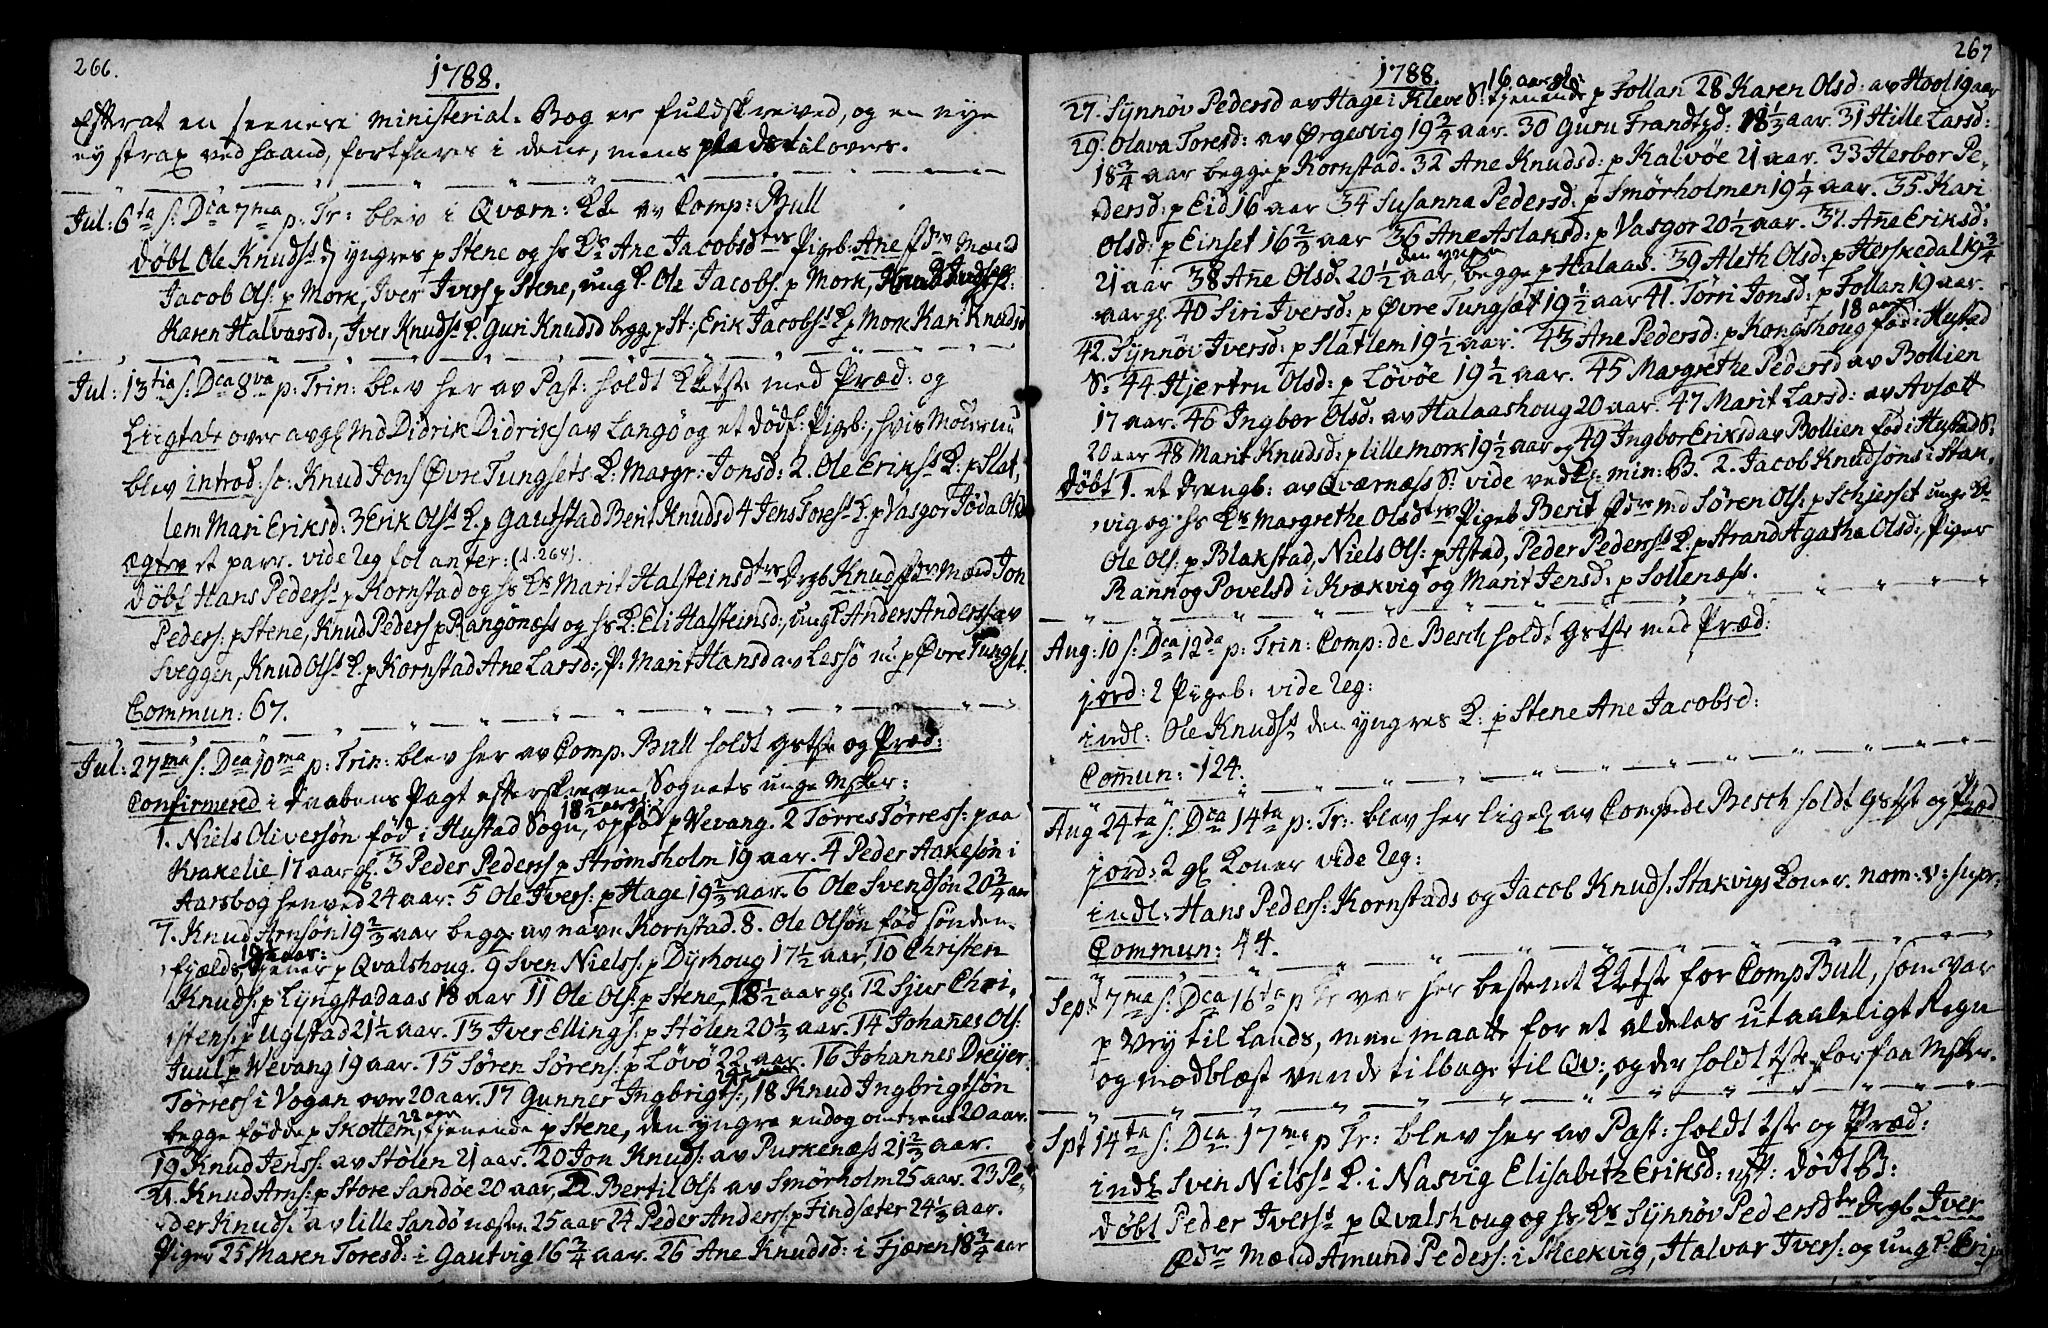 266.
1788.
Efterat en seenere ministerial. Bog er fuldskreved, og en nye
ey strax ved haand, fortfares i dene, mens plads tilovers.
Jul: 6ta s: Dca 7ma p. Tr: blev i Qværn: Kk av Comp: Bull
døbt Ole Knuds: d yngres p Stene og hs K: Ane Jacobsd Pigeb: Ane fdre Mænd
Jacob Ols: p Mork, Iver Ivers p Stene, ung K. Ole Jacobs: p Mork,
Karen Halvarsd:, Iver Knuds K. Guri Knudsd begg p St:, Erik Jacobs K p Mork Kari Knudsd
Jul: 13tia s: Dca 8va p: Trin: blev her av Past: holdt Ktste med Præd: og
Liigtale over avg Md Didrik Didriks av Langø og et dødf: Pigeb:, hvis Moder nu
blev introd: sc: Knud Jons Øvre Tungsets K: Margr: Jonsd: 2. Ole Eriks K: p Slat,
lem Mari Eriksd: 3 Erik Ols K. p Gautstad Berit Knudsd 4 Jens Tores K. p Vasgor Jøda Olsd
ægtev et parr. vide reg fol anter: (1.264).
døbt Hans Peders: p Kornstad og hs K Marit Halsteinsd Drgb Knud fdre Mænd Jon
Peders: p Stene, Knud Peders p Rangønæss og hs K: Eli Halsteinsd:, ungK Anders Anders av
Sveggen, Knud Ols K. p Kornstad Ane Larsd:, P: Marit Hansd av Lessø nu p Øvre Tungset.
Commun: 67.
Jul: 27ma s: Dca 10ma p: Trin: blev her av Comp. Bull holdt Gstste og Præd:
Confirmered i Daabens Pagt efterskrevne Sognets unge Msker:
1. Niels Oliversøn fød i Hustad Sogn, 18 1/2 aar opfød p Vevang. 2 Tørres Tørress: paa
Krakelie 17 aar gl. 3 Peder Peders p Strømsholm 19 aar. 4 Peder Aakesøn i
Aarsbog henved 24 aar. 5 Ole Ivers: p Hage 19 2/3 aar. 6 Ole Svendsøn 20 3/4 aar
7. Knud Arnsøn 19 2/3 aar begge av nave Kornstad. 8. Ole Olsøn fød sønden-
fjelds tjener p Qvalshoug. 9 Sven Niels: p Dyrhoug 17 1/2 aar, 10 Christen
Knuds: p Lyngstadaas 18 aar 11 Ole Ols: p Stene, 18 1/2 aar gl: 12 Sjur Chri,
stens: p Uglstad 21 1/2 aar. 13 Iver Ellings: p Stølen 20 1/3 aar. 14 Johanes Ols:
Juul p Wevang 19 aar. 15 Søren Sørens: p Løvø 22 aar. 16 Johannes Dreijer
Tørress i Vogan over 20 aar. 17 Gunner Ingbrigts:, 18 Knud Ingbrigtsøn
begge fødde p Skottem, 22 aar tjenende p Stene, den yngre endog omtrent 20 aar.
19 Knud Jenss: av Stølen 21 aar. 20 Jon Knuds: av Purkenæss 21 2/3 aar.
21. Knud Arns: p Store Sandøe 20 aar, 22. Bertil Ols: av Smørholm 25 aar. 23 Pe,
der Knuds: av lille Sandø næsten 25 aar 24 Peder Anders: p Findsæter 24 1/3 aar.
Piger 25 Maren Toresd: i Gautvig 16 3/4 aar. 26 Ane Knudsd: i Fjæren 18 3/4 aar
267
1788.
27. Synnøv Pedersd av Hage i Kleve S: 16 aar gl: tjenende p Follan 28 Karen Olsd: av Hool 19 aar
29. Olava Toresd: av Ørgesvig 19 3/4 aar. 30 Guru Frandtzd: 18 1/3 aar. 31 Hille Larsd:
18 3/4 aar begge p Kornstad. 32 Ane Knudsd: p Kalvøe 21 aar. 33 Herbor Pe,
dersd: p Eid 16 aar 34 Susanna Pedersd: p Smørholmen 19 1/4 aar. 35. Kari
Olsd: p Einset 16 2/3 aar 36 Ane Aslaksd: p Vasgor 20 1/2 aar. 37. Ane Eriksd:
21 aar 38 Ane Olsd. 20 1/2 aar, den yngre begge p Halaas. 39 Aleth Olsd: p Herskedal 19 3/4
aar gl 40 Siri Iversd: p Øvre Tungsæt 19 1/2 aar 41. Tørri Jonsd: p Follan 19 aar.
42. Synnøv Iversd: p Slatlem 19 1/2 aar. 43 Ane Pedersd: p Kongshoug 18 aar fød i Hustad
S: 44. Hjertru Olsd: p Løvøe 19 1/2 aar. 45 Margrethe Pedersd av Bollien
17 aar. 46 Ingbor Olsd: av Halaashoug 20 aar. 47 Marit Larsd: av Avsætt
20 aar 48 Marit Knudsd: p lille mork 19 1/2 aar, 49 Ingbor Eriksd av Bollien fød i Hustad S:
døbt 1. et Drengb: av Qværnæss S: vide ved min: B. 2. Jacob Knudsøns i Stak,
vig og hs K Margrethe Olsd Pigeb Berit fdre md Søren Ols: p Schierset
Ole Ols: p Blakstad, Niels Ols: p Astad, Peder Peders K: p Strand Agatha Olsd:, Piger
Rannog Povelsd i Krækvig og Marit Jensd: p Sollenæss.
Aug: 10 s: Dca 12da p: Trin: Comp: de Besch holdt Gstste med Præd:
jord: 2 Pigeb: vide reg:
indl: Ole Knuds den yngres K: p Stene Ane Jacobsd:
Comun: 124.
Aug 24ta s: Dca 14ta p: Tr: blev her av Comp: de Besch holdt Gstst og Præd
jord: 2 gl Koner vide reg:
indl: Hans Peders: Kornstads og Jacob Knuds: Stakvigs Koner. nom: v: supr:
Commun: 44.
Sep: 7ma s: Dca 16ta p Tr var her bestemt Ktste for Comp Bull, som var
p Vey til Lands, men maatte for et aldeles utaaleligt Regn
og modblæst vende tilbage til Qv:, og der holdt tste for faa Msker.
Spt 14ta s: Dca 17ma p Tr: blev her av Past: holdt tste og Præd:
indl Sven Nils K: i Nasvig Elisabetz Eriksd: dødt B:
døbt Peder Ivers p Qvalshoug og hs K Synnøv Pedersd Drgb Iver
fdre Mænd Amund Peders: i Meekvig, Halvar Ivers: og ung K: Eri